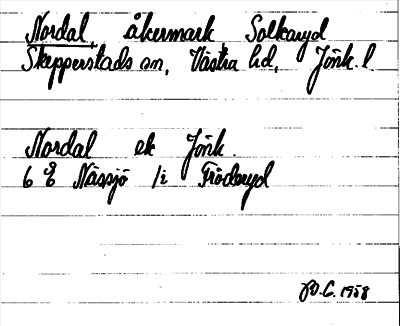 Nordal, åkermark Solkaryd
Skepperstads sn, Västra hd, Jönk. l.
Nordal ek Jönk.
6 E Nässjö 1i Fröderyd
P.G. 1958